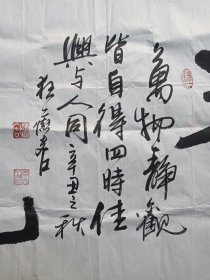 萬物靜觀
皆自得四時佳
興与人同辛丑之秋